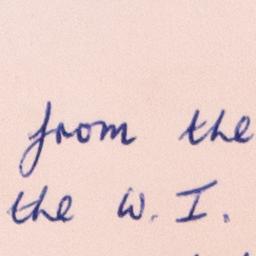 from the
the W. I.